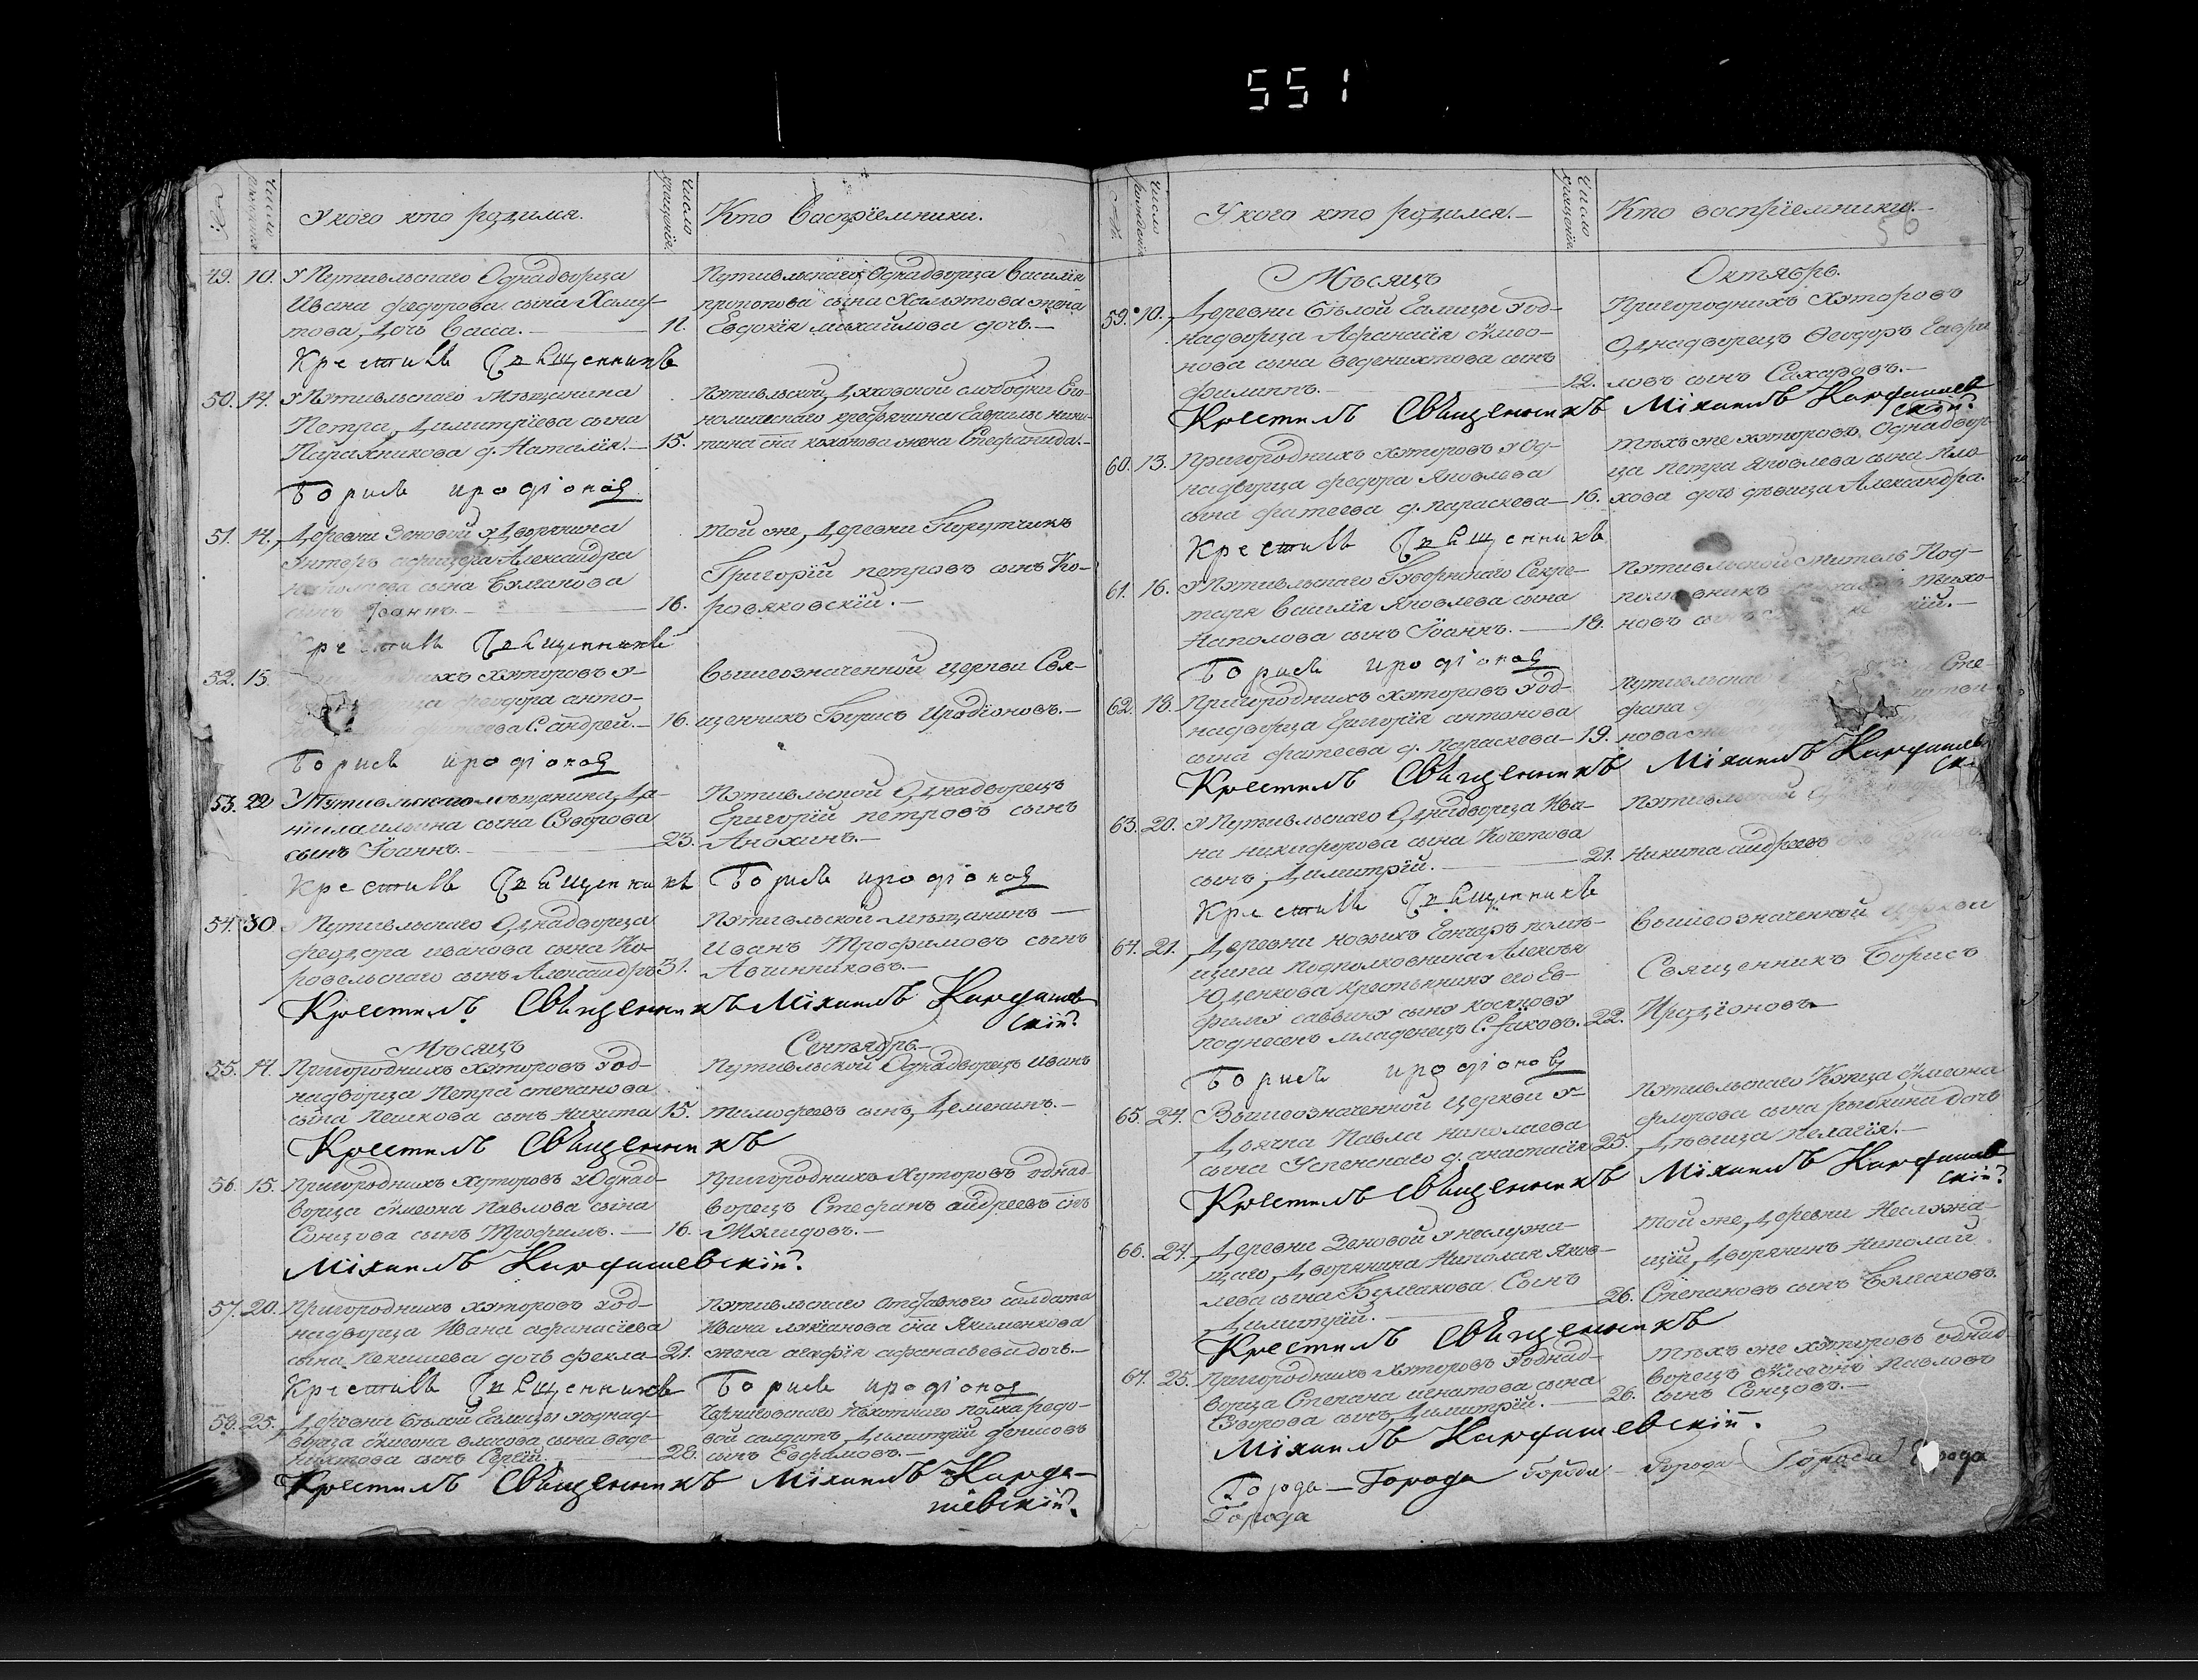 551
№.
Число рожденія
У кого кто родился.
Число крещенія.
Кто Воспріемники.
49. 10. У Путивльскаго Однадворца
Ивана федорова сына Халу-
това, дочь Васса. — 11.
Путивльскаго Однадворца Василія
прокопова сына Халутова жена
Евдокія михайлова дочь.—
Крестилъ Священникъ
50. 14. У Путивльскаго мѣщанина
Петра, Димитріева сына
д. Наталія.— 15.
Путивльской, слободки Еко-
номическаго крестьянина Гаврила ники-
тина сна жена Стефанида.—
Борисъ иродіоновъ
51. 14. Деревни Зеновой у Дворянина
Александра
сына Булгакова
сынъ Іоаннъ.— 16.
той же, Деревни Порутчикъ
Григорій петровъ сынъ Ко-
ровяковскій.—
Крестилъ Священникъ
52. 15. хуторовъ у
феодора анто-
фатеева С. андрей.— 16.
вышеозначенной церкви Свя-
щенникъ Борисъ Иродіоновъ.—
Борисъ иродіоновъ
53. 22 У Путивльскаго мѣщанина, Да-
ніила ильина сына Суворова
сынъ Іоаннъ. 23.
Путивльской Однадворецъ
Григорій петровъ сынъ
Анохинъ.—
Крестилъ Священникъ Борисъ иродіоновъ
54. 30 У Путивльскаго Однадворца
феодора иванова сына Ко-
ровельскаго сынъ Александръ 31.
Путивльской мѣщанинъ —
Иванъ Трофимовъ сынъ
Авчинниковъ.—
Крестилъ Священникъ Міхаилъ Кардашев
скій.
Мѣсяцъ Сентябрь.—
55. 14. Пригороднихъ хуторовъ у од-
надворца Петра степанова
сына Пешкова сынъ Никита 15.
Путивльской Однадворецъ иванъ
тимофеевъ сынъ, Деменинъ.—
Крестилъ Священникъ
56. 15. Пригороднихъ хуторовъ у Однад-
ворца Симеона Павлова сына
Сонцова сынъ Трофимъ.— 16.
Пригороднихъ Хуторовъ однад-
ворецъ Стефанъ андреевъ снъ
Жилидовъ.—
Міхаилъ Кардашевскій.
57. 20. Пригороднихъ хуторовъ у од-
надворца Ивана афанасіева
сына дочь фекла— 21.
Путивльскаго отставного салдата
Ивана лукіанова сна Якименкова
жена агафія афанасьева дочь.—
Крестилъ Священникъ Борисъ иродіоновъ
58. 25. Деревни Бѣлой Галицы у однад-
ворца Симеона власова сына веде-
никтова сынъ Сергій. 28.
Черниговскаго Пѣхотнаго полка редо-
вой салдатъ, Димитрій фомовъ
сынъ Ефимовъ.—
Крестилъ Священникъ Міхаилъ Карда-
шевскій.
№.
Число рожденія
У кого кто родился.—
Число крещенія.
Кто воспріемники.—
56
Мѣсяцъ Октябрь.
59. 10. Деревни Бѣлой Галицы у од-
надворца Афанасія Симео-
нова сына веденихтова сынъ
Филиппъ.— 12.
Пригороднихъ хуторовъ
Однадворецъ Ѳеодоръ Гаври
ловъ сынъ Сахаровъ.—
Крестилъ Священникъ Міхаилъ Кардашев
скій.
60. 13. Пригороднихъ хуторовъ у Од-
надворца федора Яковлева
сына фатеева д. параскева— 16.
тѣхъ же хуторовъ Однадвор-
ца Петра Яковлева сына
дочь дѣвица Александра.
Крестилъ Священникъ
61. 16. У Путивльскаго Губернскаго Секре-
таря Василія Яковлева сына
Наполова сынъ Іоаннъ.— 18.
Путивльской житель Под-
полковникъ
новъ
Борисъ иродіоновъ
62. 18. Пригороднихъ хуторовъ у од-
надворца Григорія антонова
сына фатеева д. Параскева— 19.
Путивльскаго Сте-
фана
нова жена
Крестилъ Священникъ Міхаилъ Кардашев
63. 20. У Путивльскаго Однадворца Ива-
на никифорова сына Кочетова
сынъ, Димитрій.— 21.
Путивльской
Никита андреевъ
Крестилъ Священникъ
64. 21. Деревни новыхъ Гончаръ помѣ-
щика Подполковника Алексѣя
Юденкова Крестьянину его Ев-
фиму саввину сыну
поднесенъ младенецъ С. Іаковъ. 22.
Вышеозначенной церкви
Священникъ Борисъ
Иродіоновъ—
Борисъ иродіоновъ
65. 24. Вышеозначенной церкви у
Дьячка Павла николаева
сына Успенскаго д. анастасія 25.
Путивльскаго Купца Симеона
флорова сына рыбкина дочь
Дѣвица пелагія.—
Крестилъ Священникъ Міхаилъ Кардашев
скій.
66. 24. Деревни Зеновой у неслужа-
щаго, Дворянина Николая Яков-
лева сына Булгакова Сынъ
Димитрій.— 26.
той же, Деревни Неслужа-
щій, Дворянинъ Николай
Степановъ сынъ Булгаковъ.
Крестилъ Священникъ
67. 25. Пригороднихъ хуторовъ у однад-
ворца Степана игнатова сына
Суворова сынъ, Димитрій.— 26.
тѣхъ же хуторовъ однад-
ворецъ Симеонъ павловъ
сынъ Сонцовъ.—
Міхаилъ Кардашевскій.
Города— Города Города— Города— Города Города
Города